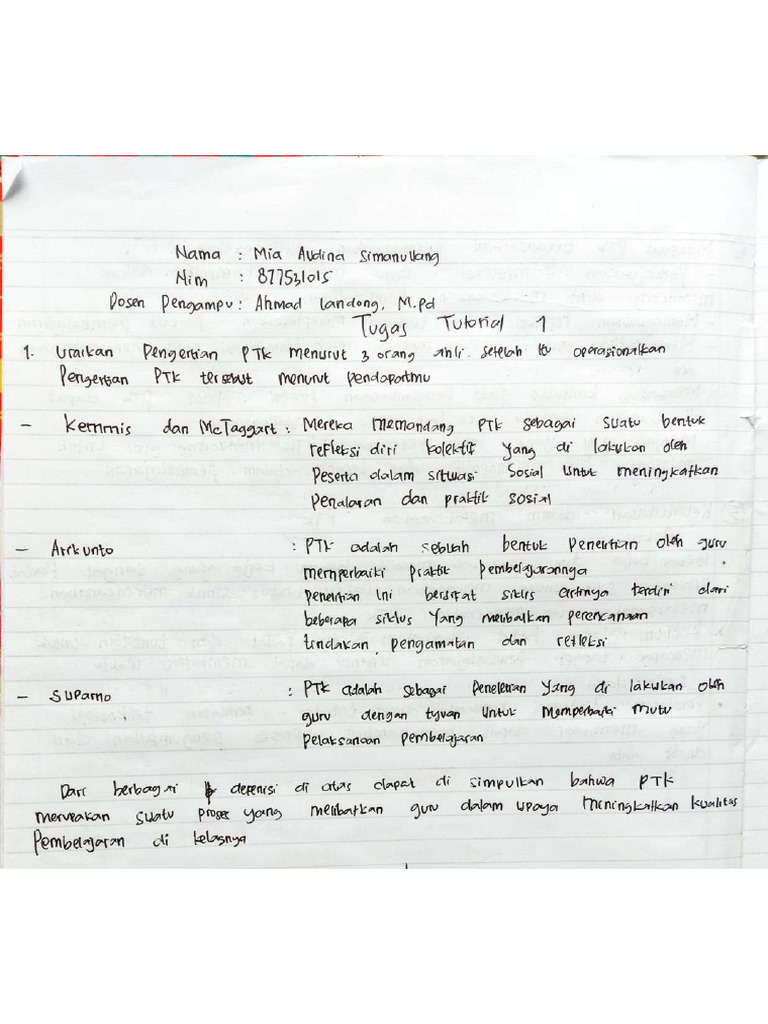 Nama : Mia Audina Simanullang
Nim : 877531015
Dosen Pengampu : Ahmad Landong, M.Pd
Tugas Tutorial 1
1. Uraikan Pengertian PTK menurut 3 orang ahli. setelah itu operasionalkan
Pengertian PTK tersebut menurut pendapatmu
- Kemmis dan McTaggart : Mereka memandang PTK sebagai suatu bentuk
refleksi diri kolektif yang di lakukan oleh
Peserta dalam situasi Sosial Untuk meningkatkan
Penalaran dan praktik sosial
- Arikunto : PTK adalah sebuah bentuk Penelitian oleh guru
memperbaiki praktik pembelajarannya
penelitian Ini bersifat siklus artinya terdiri dari
beberapa siklus Yang melibatkan perencanaan
tindakan, pengamatan dan refleksi
- Suparno : PTK adalah sebagai Peneletian Yang di lakukan oleh
guru dengan tujuan Untuk Memperbaiki Mutu
Pelaksanaan Pembelajaran
Dari berbagai depenisi di atas dapat di simpulkan bahwa PTK
merupakan suatu proses yang melibatkan guru dalam upaya meningkatkan kualitas
Pembelajaran di kelasnya